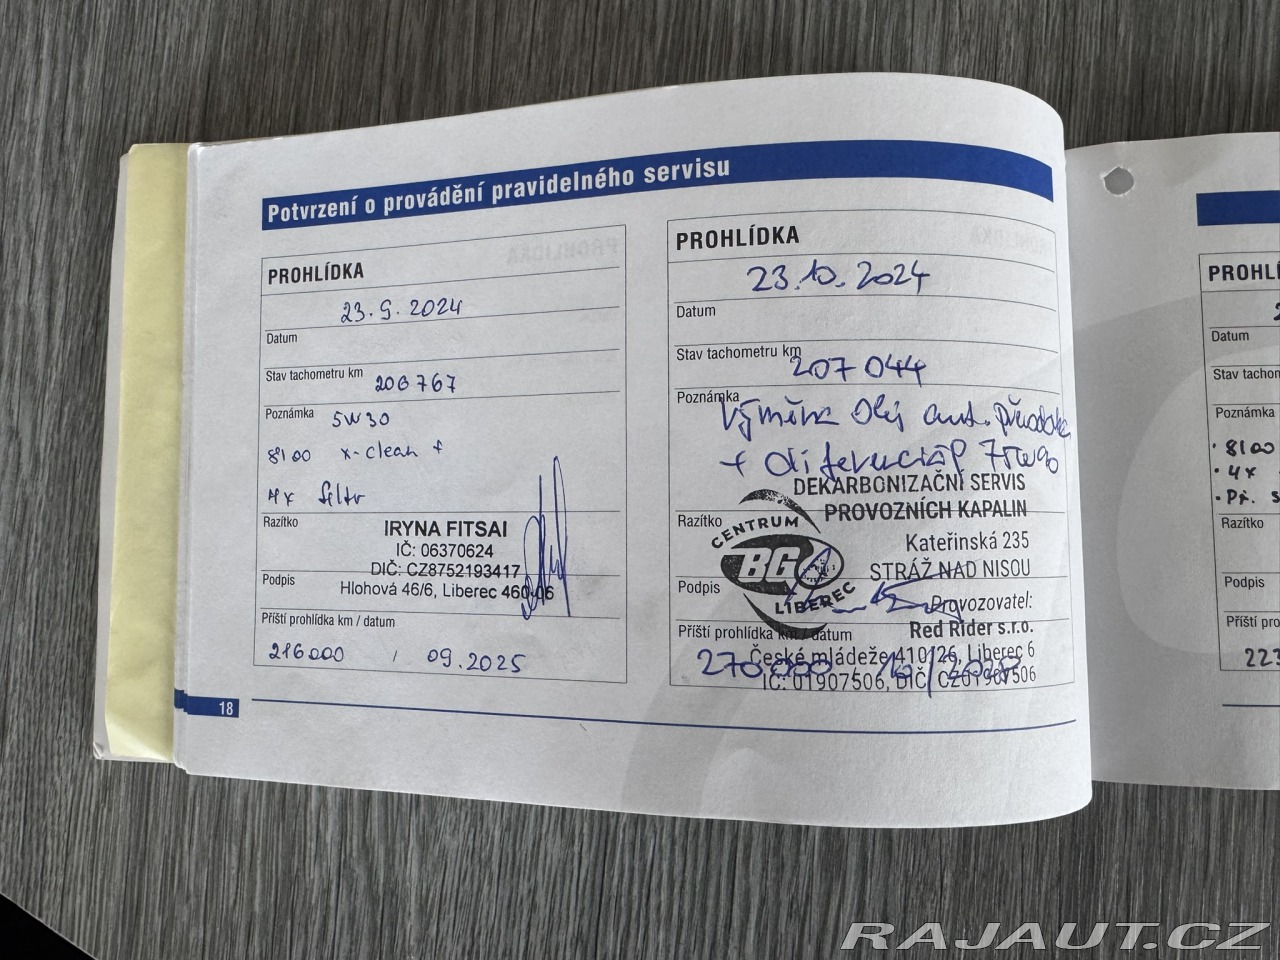 Potvrzení o provádění pravidelného servisu
PROHLÍDKA
23.9.2024
Datum
Stav tachometru km 206767
Poznámka 5W30
8100 x-clean +
4x filtr
Razítko
IRYNA FITSAI
IČ: 06370624
DIČ: CZ8752193417
Podpis
Hlohová 46/6, Liberec 460 06
Příští prohlídka km / datum
216000 / 09.2025
18
PROHLÍDKA
23.10.2024
Datum
Stav tachometru km
207 044
Poznámka
Výměna Olej aut. převodovka
+ diferenciál 75W90
DEKARBONIZAČNÍ SERVIS
PROVOZNÍCH KAPALIN
Razítko
CENTRUM
BG
LIBEREC
Kateřinská 235
STRÁŽ NAD NISOU
Podpis
Provozovatel:
Red Rider s.r.o.
Příští prohlídka km / datum
České mládeže 410/26, Liberec 6
270.000
IČ: 01907506, DIČ: CZ01907506
PROHLÍ
Datum
Stav tachom
Poznámka
• 8100
• 4x
• Př. s
Razítko
Podpis
Příští pro
223
RAJAUT.CZ